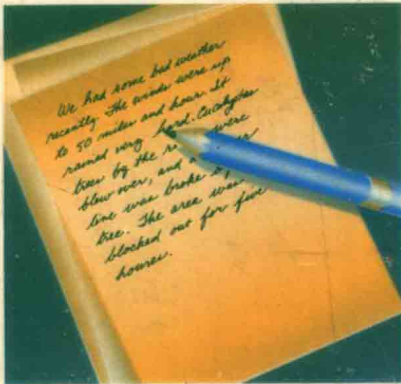 We had some bad weather
recently. The winds were up
to 50 miles and hour. It
rained very hard. Eucalyptus
trees by the were
blew over, and a
line was broke by
tree. The area was
blocked out for five
houres.